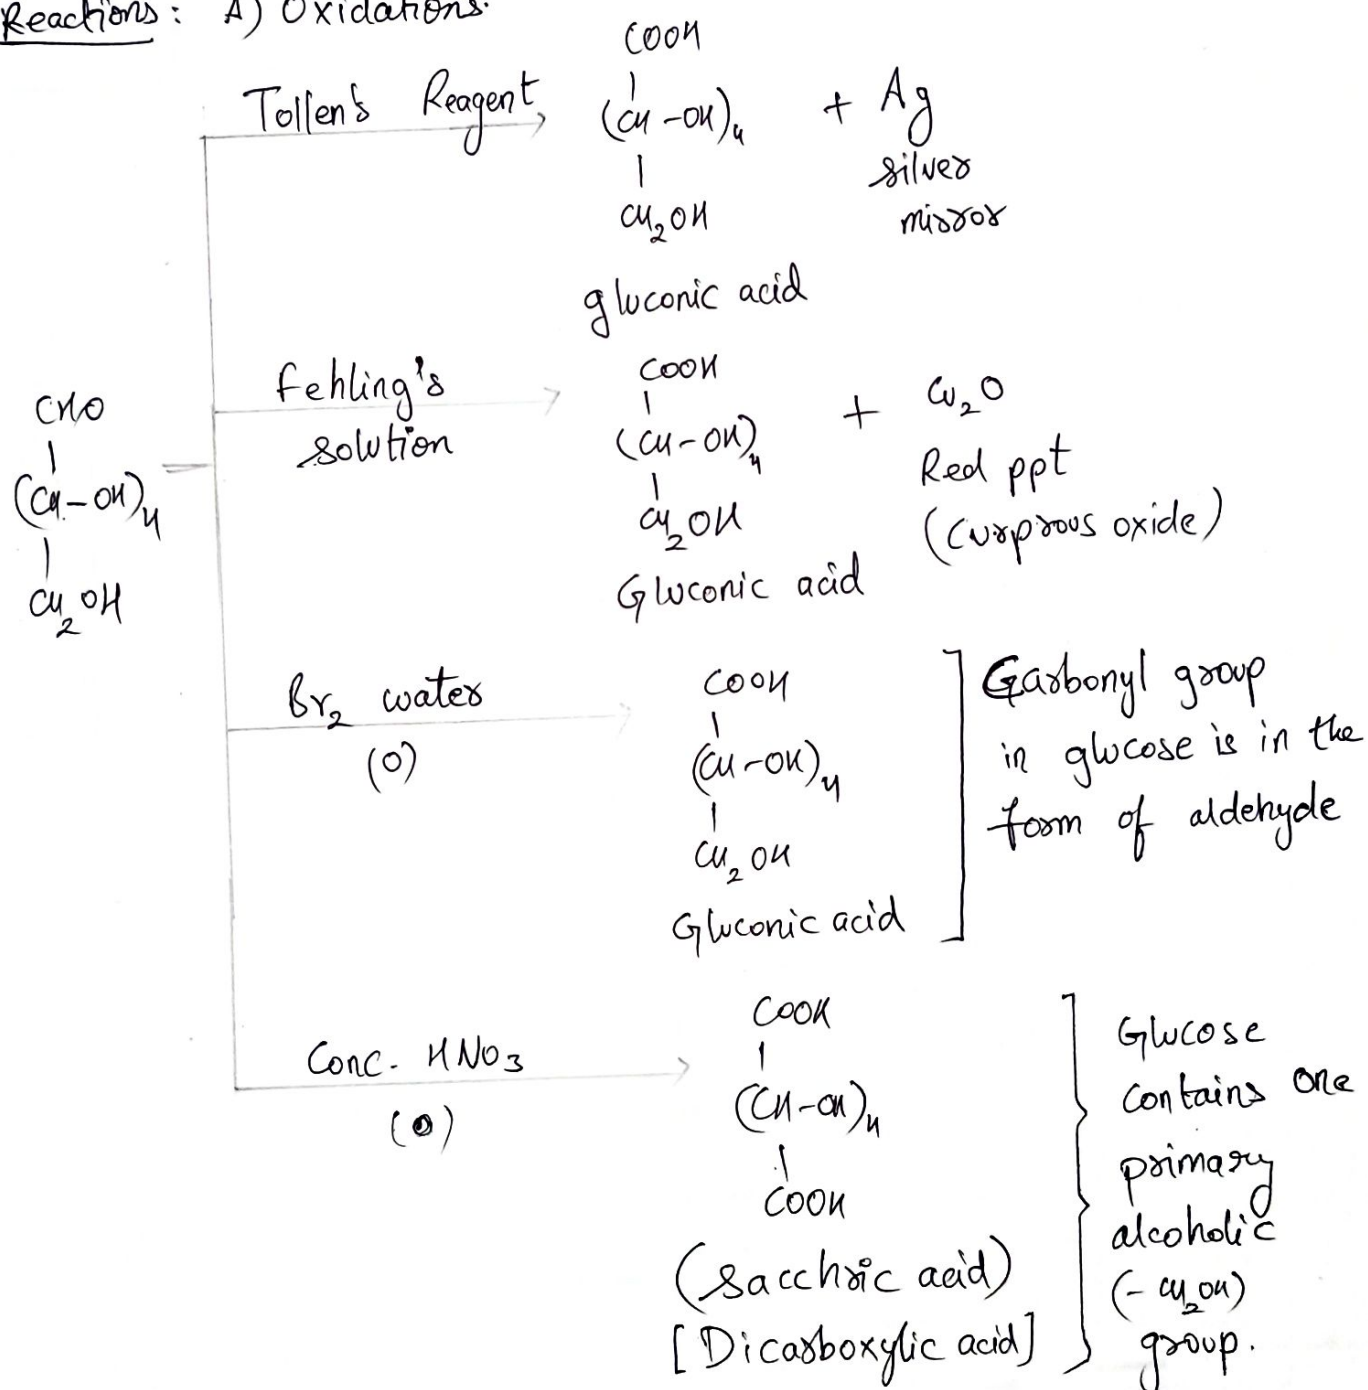 Reactions: A) Oxidations.
Tollen's Reagent
COOH
(CH-OH)₄
CH₂OH
+ Ag
silver
mirror
gluconic acid
CHO
(CH-OH)₄
CH₂OH
Fehling's
solution
COOH
(CH-OH)₄
CH₂OH
Gluconic acid
+ Cu₂O
Red ppt
(Curprous oxide)
Br₂ water
(O)
COOH
(CH-OH)₄
CH₂OH
Gluconic acid
Carbonyl group
in glucose is in the
form of aldehyde
Conc. HNO₃
(O)
COOH
(CH-OH)₄
COOH
(Sacchric acid)
[Dicarboxylic acid]
Glucose
contains one
primary
alcoholic
(-CH₂OH)
group.